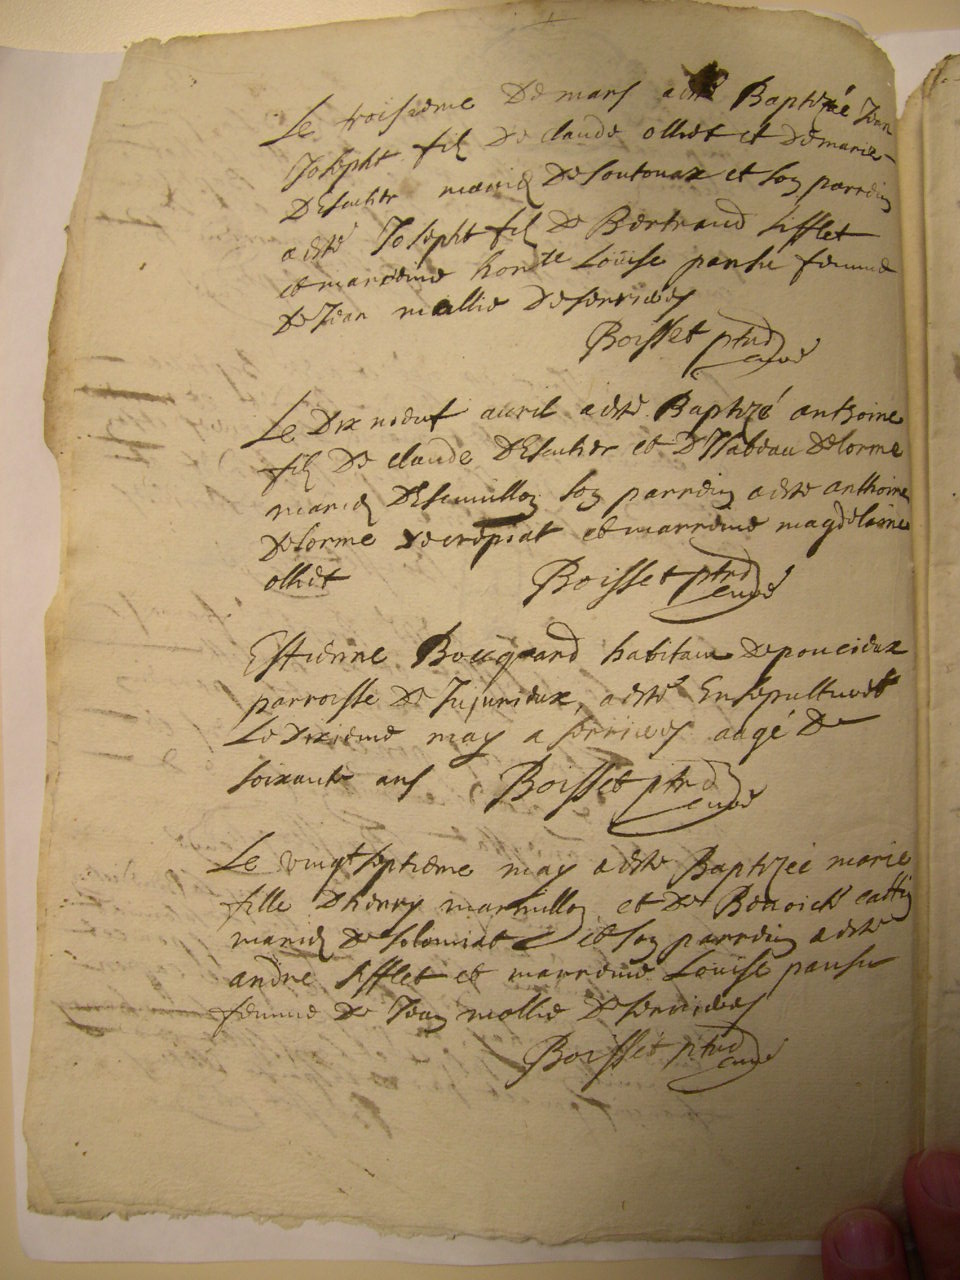 Le troisieme De mars a esté Baptizé Jean
Joseph fils De claude olliet et De marie
D'Escuties mariés De soutonax et son parrein
a esté Joseph fils De Bertrand sifflet
et marreine honte Louise pansu femme
de Jean mollie De serrieres
Boisset ptre
curé
Le Dix neuf auril a esté Baptizé anthoine
fils De claude D'Escutier et D'ysabeau Delorme
mariés son parrein a esté anthoine
Delorme De crepiat et marreine magdelaine
olliet Boisset ptre
curé
Estienne Bocquand habitant De poncieux
parroisse De Jujurieux, a esté Ensepulturé
Le Dixieme may a serrieres aagé De
soixante ans Boisset ptre
curé
Le vingt septieme may a esté Baptizée marie
fille D'henry marmillon et De Benoicte cattin
mariés De solomiat et son parrein a esté
andre sifflet et marreine Louise pansu
femme De Jean mollie De serrieres
Boisset ptre
curé